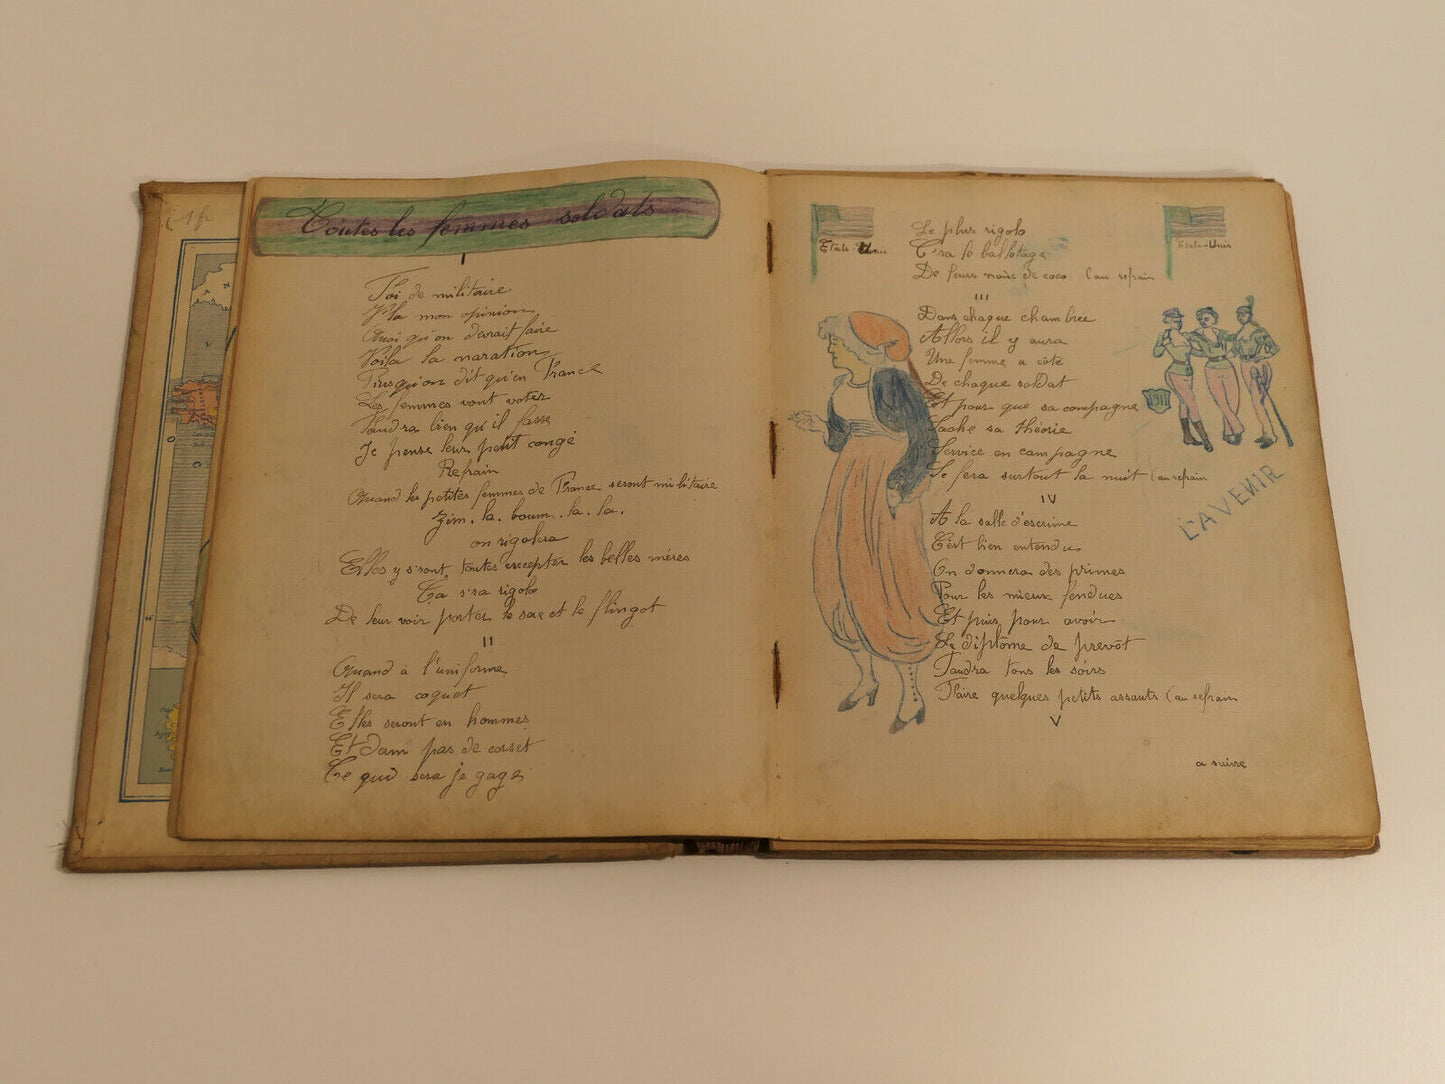 1 fr
Toutes les femmes soldats
I
Foi de militaire
V'la mon opinion
Quoi qu'on devrait faire
Voila la naration
Puisqu'on dit qu'en France
Les femmes vont voter
Faudra bien qu'il fasse
Je pense leur petit congé
Refrain
Quand les petites femmes de France seront militaire
Zim. la. boum. la. la.
on rigolera
Elles y s'ront toutes excepter les belles mères
Ça s'ra rigolo
De leur voir porter le sac et le flingot
II
Quand à l'uniforme
Il sera coquet
Elles seront en hommes
Et dam pas de corset
Ce qui sera je gage
Etats-Unis
Le plus rigolo
C'ra le ballotage
De leurs noix de coco (au refrain
Etats-Unis
III
Dans chaque chambree
Allors il y aura
Une femme a côté
De chaque soldat
Et pour que sa compagne
Sache sa théorie
Service en campagne
Se fera surtout la nuit (au refrain
1911
L'AVENIR
IV
A la salle d'escrime
C'est bien entendu
On donnera des primes
Pour les mieux fendues
Et puis pour avoir
Le diplôme de prevôt
Faudra tous les soirs
Faire quelques petits assauts (au refrain
V
a suivre